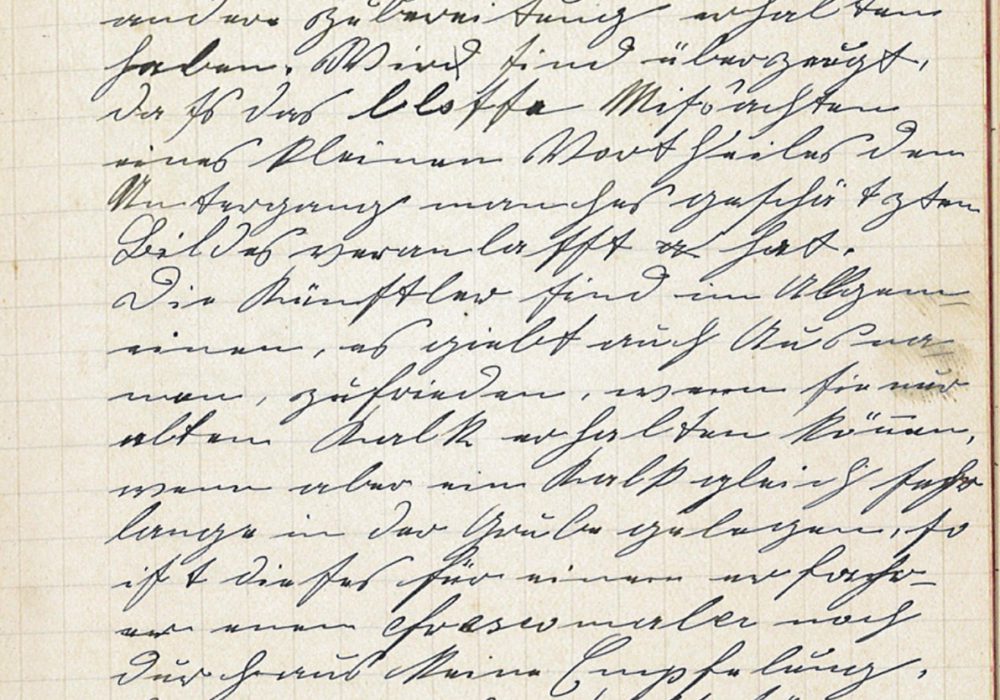 andere Zubereitung erhalten
haben. Wird sind überzeugt,
daſs das bloſse Miſsachten
eines kleinen Vortheiles den
Untergang manches geschätzten
Bildes veranlaſst hat.
Die Künstler sind im Allgem-
einen, es giebt auch Ausna-
men, zufrieden, wenn sie nur
alten Kalk erhalten können,
wenn aber ein Kalk gleich sehr
lange in der Grube gelegen, so
ist dieses für einen erfahr-
enen Frescomaler noch
durchaus keine Empfelung.